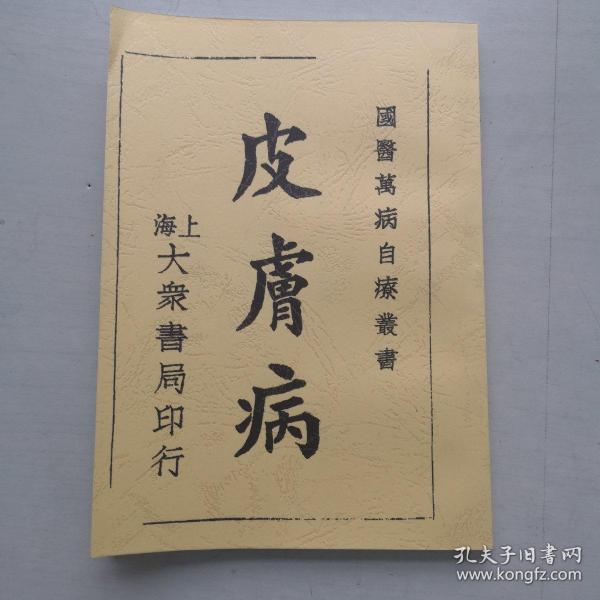 國醫萬病自療叢書
皮膚病
上海
大衆書局印行
孔夫子旧书网
www.kongfz.com